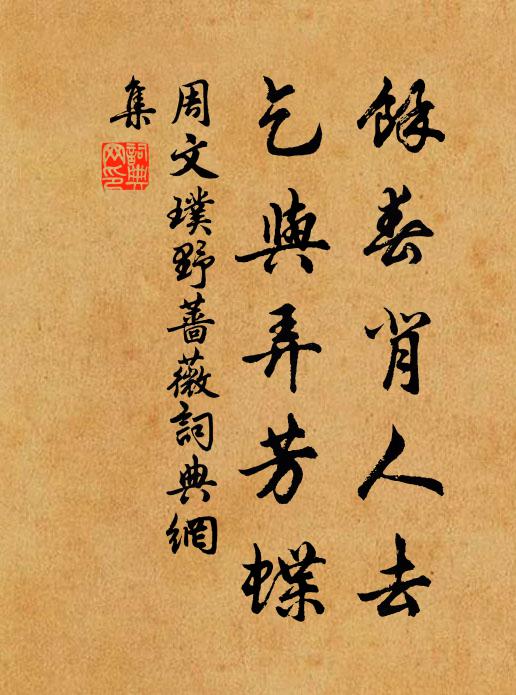 餘春背人去
乞與弄芳蝶
周文璞野薔薇詞典網
集
詞典
网印